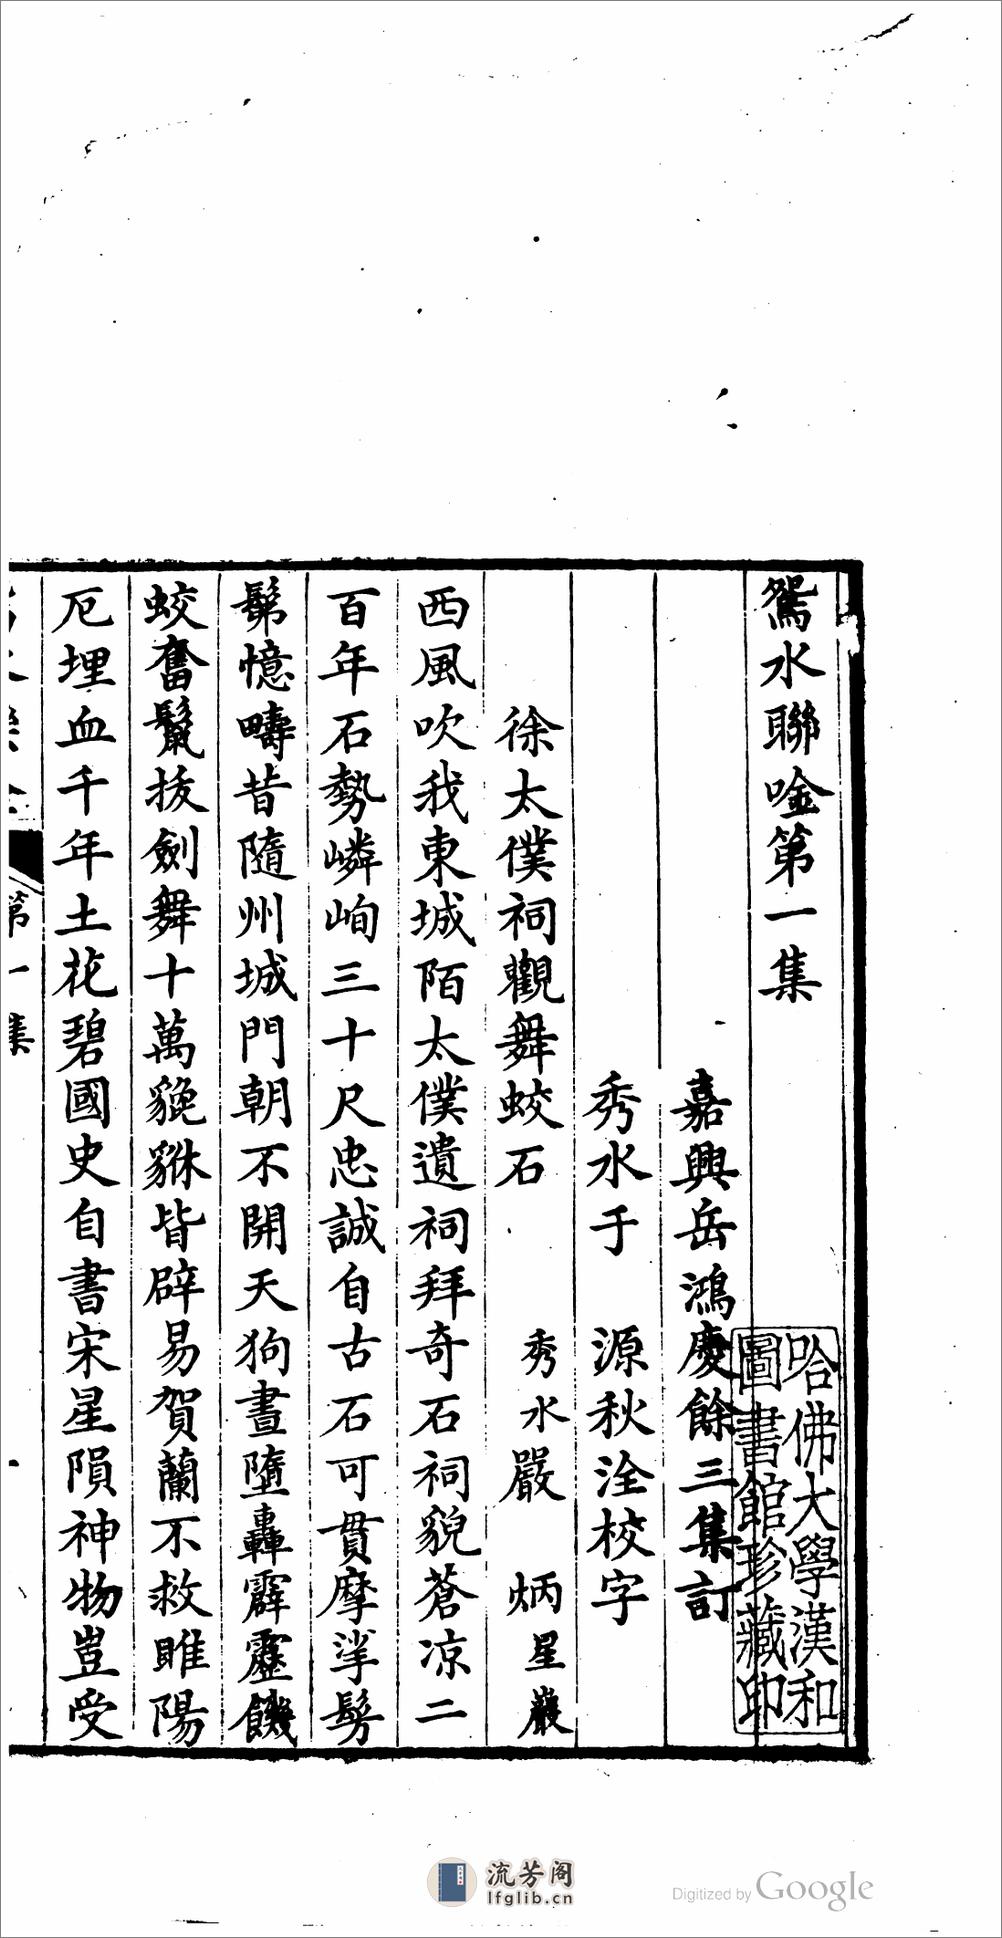 鴛水聯唫第一集
嘉興岳鴻慶餘三集訂
秀水于　源秋淦校字
徐太僕祠觀舞蛟石　秀水嚴　炳星巖
西風吹我東城陌太僕遺祠拜奇石祠貌蒼凉二
百年石勢嶙峋三十尺忠誠自古石可貫摩挲髣
髴憶疇昔隨州城門朝不開天狗晝墮轟霹靂饑
蛟奮鬣拔劍舞十萬貔貅皆辟易賀蘭不救睢陽
厄埋血千年土花碧國史自書宋星隕神物豈受
第一集
哈佛大學漢和
圖書館珍藏印
流芳阁
lfglib.cn
Digitized by Google